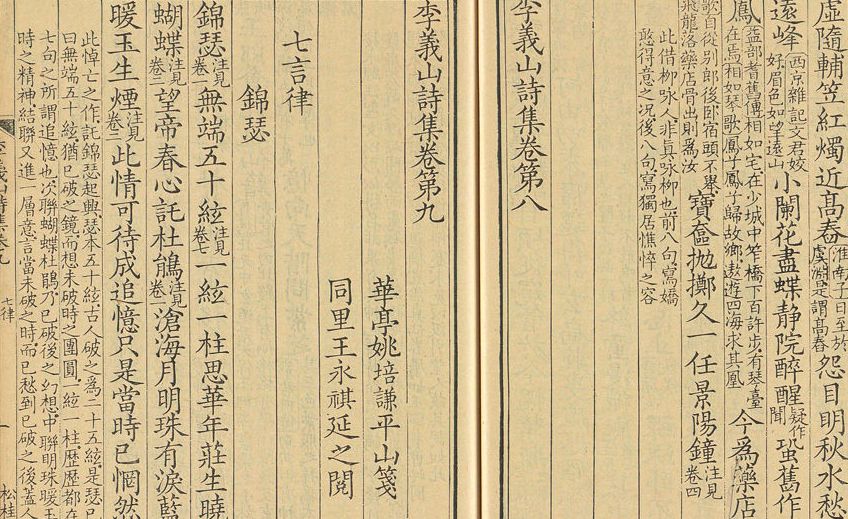 虛隨輔笠紅燭近高舂淮南子日至於虞淵是謂高舂怨目明秋水愁
遠峰西京雜記文君姣好眉色如望遠山小闌花盡蝶靜院醉醒疑作聞蛩舊作
鳳益部耆舊傳相如宅在少城中笮橋下百許步有琴臺在焉相如琴歌鳳子鳳子歸故鄉遨遊四海求其凰今爲藥店
歌自從别郎後臥宿頭不舉飛龍落藥店骨出則爲汝寶奩抛擲久一任景陽鐘注見卷四
此借柳咏人非眞咏柳也前八句寫嬌
憨得意之况後八句寫獨居憔悴之容
李義山詩集卷第八
李義山詩集卷第九
華亭姚培謙平山箋
同里王永祺延之閱
七言律
錦瑟
錦瑟注見卷無端五十絃注見卷七一絃一柱思華年莊生曉
蝴蝶注見卷二望帝春心託杜鵑注見卷滄海月明珠有淚藍
暖玉生煙注見卷三此情可待成追憶只是當時已惘然
此悼亡之作託錦瑟起興瑟本五十絃古人破之爲二十五絃是瑟已
曰無端五十絃猶已破之鏡而想未破時之團圓一絃一柱歷歷都在
七句之所謂追憶也次聯蝴蝶杜鵑乃已破後之幻想中聯明珠暖玉
時之精神結聯又進一層意言當未破之時而已愁到已破之後葢人
李義山詩集卷九 七律 一 松桂